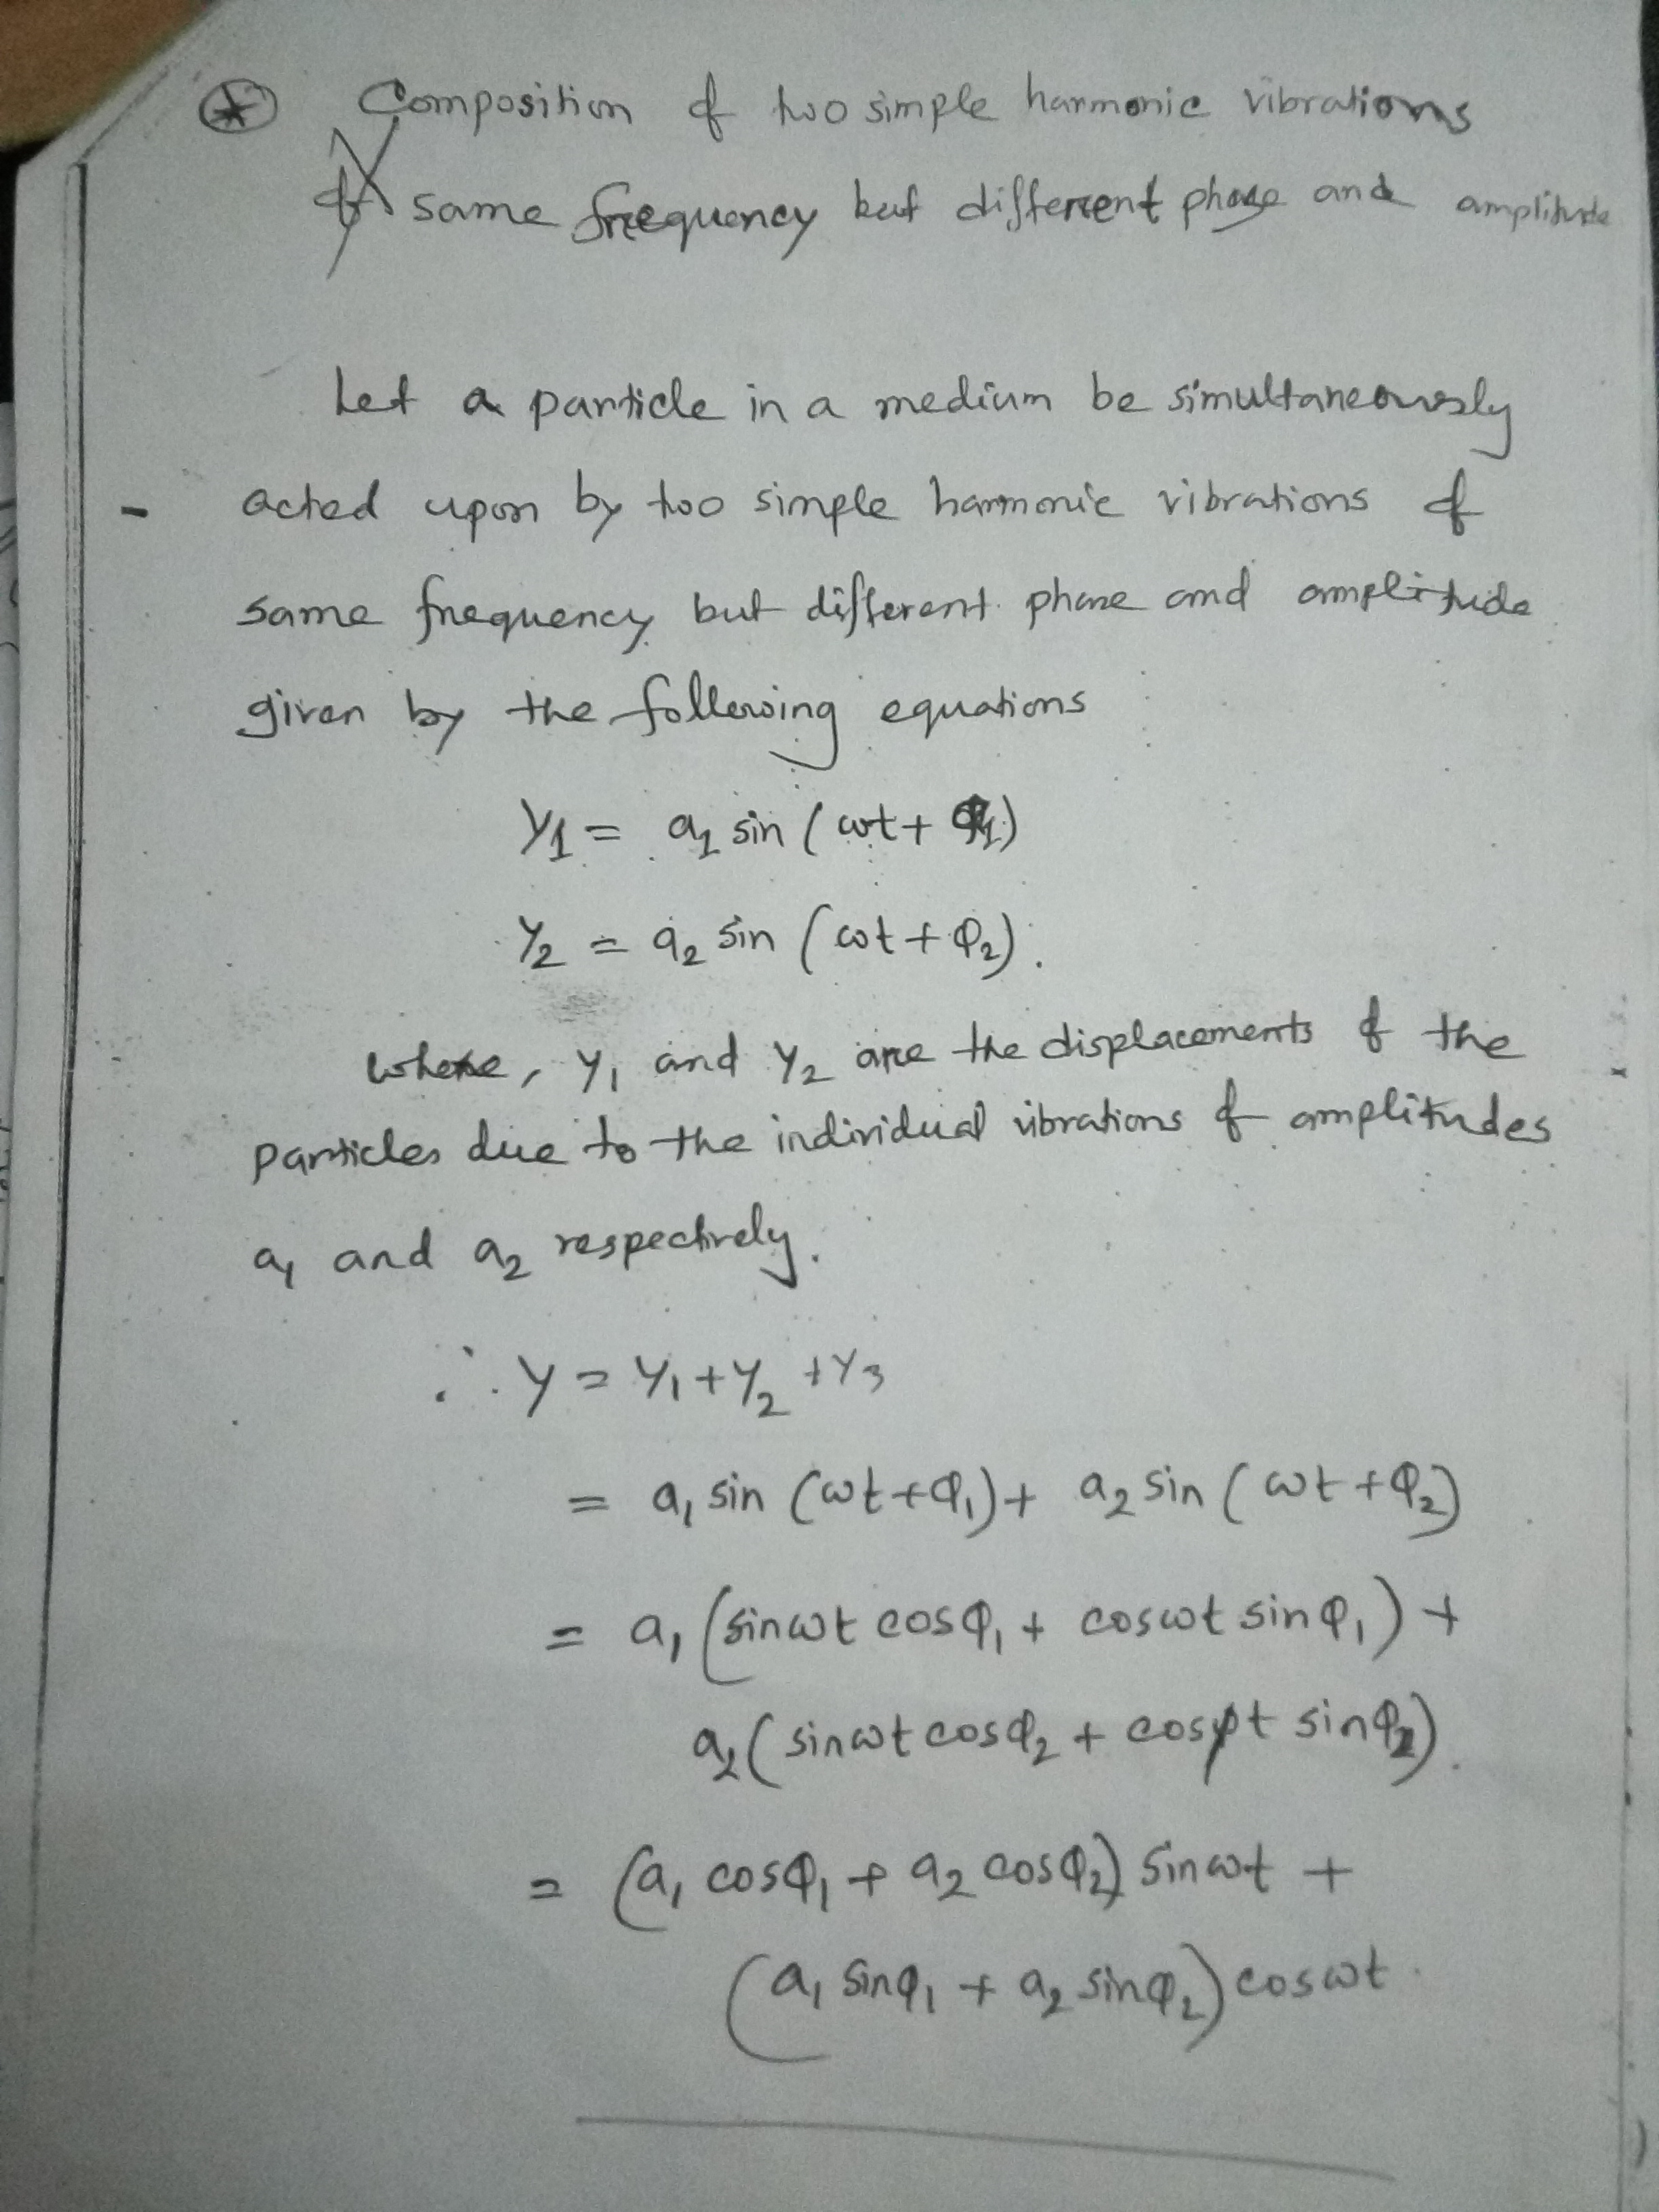 Composition of two simple harmonic vibrations
of same frequency but different phase and amplitude
Let a particle in a medium be simultaneously
acted upon by two simple harmonic vibrations of
same frequency but different phase and amplitude
given by the following equations
y1 = a1 sin (ωt + φ1)
y2 = a2 sin (ωt + φ2).
where, y1 and y2 are the displacements of the
particles due to the individual vibrations of amplitudes
a1 and a2 respectively.
∴ y = y1 + y2 + y3
= a1 sin (ωt + φ1) + a2 sin (ωt + φ2)
= a1 (sin ωt cos φ1 + cos ωt sin φ1) +
a2 (sin ωt cos φ2 + cos ωt sin φ2).
= (a1 cos φ1 + a2 cos φ2) sin ωt +
(a1 sin φ1 + a2 sin φ2) cos ωt.